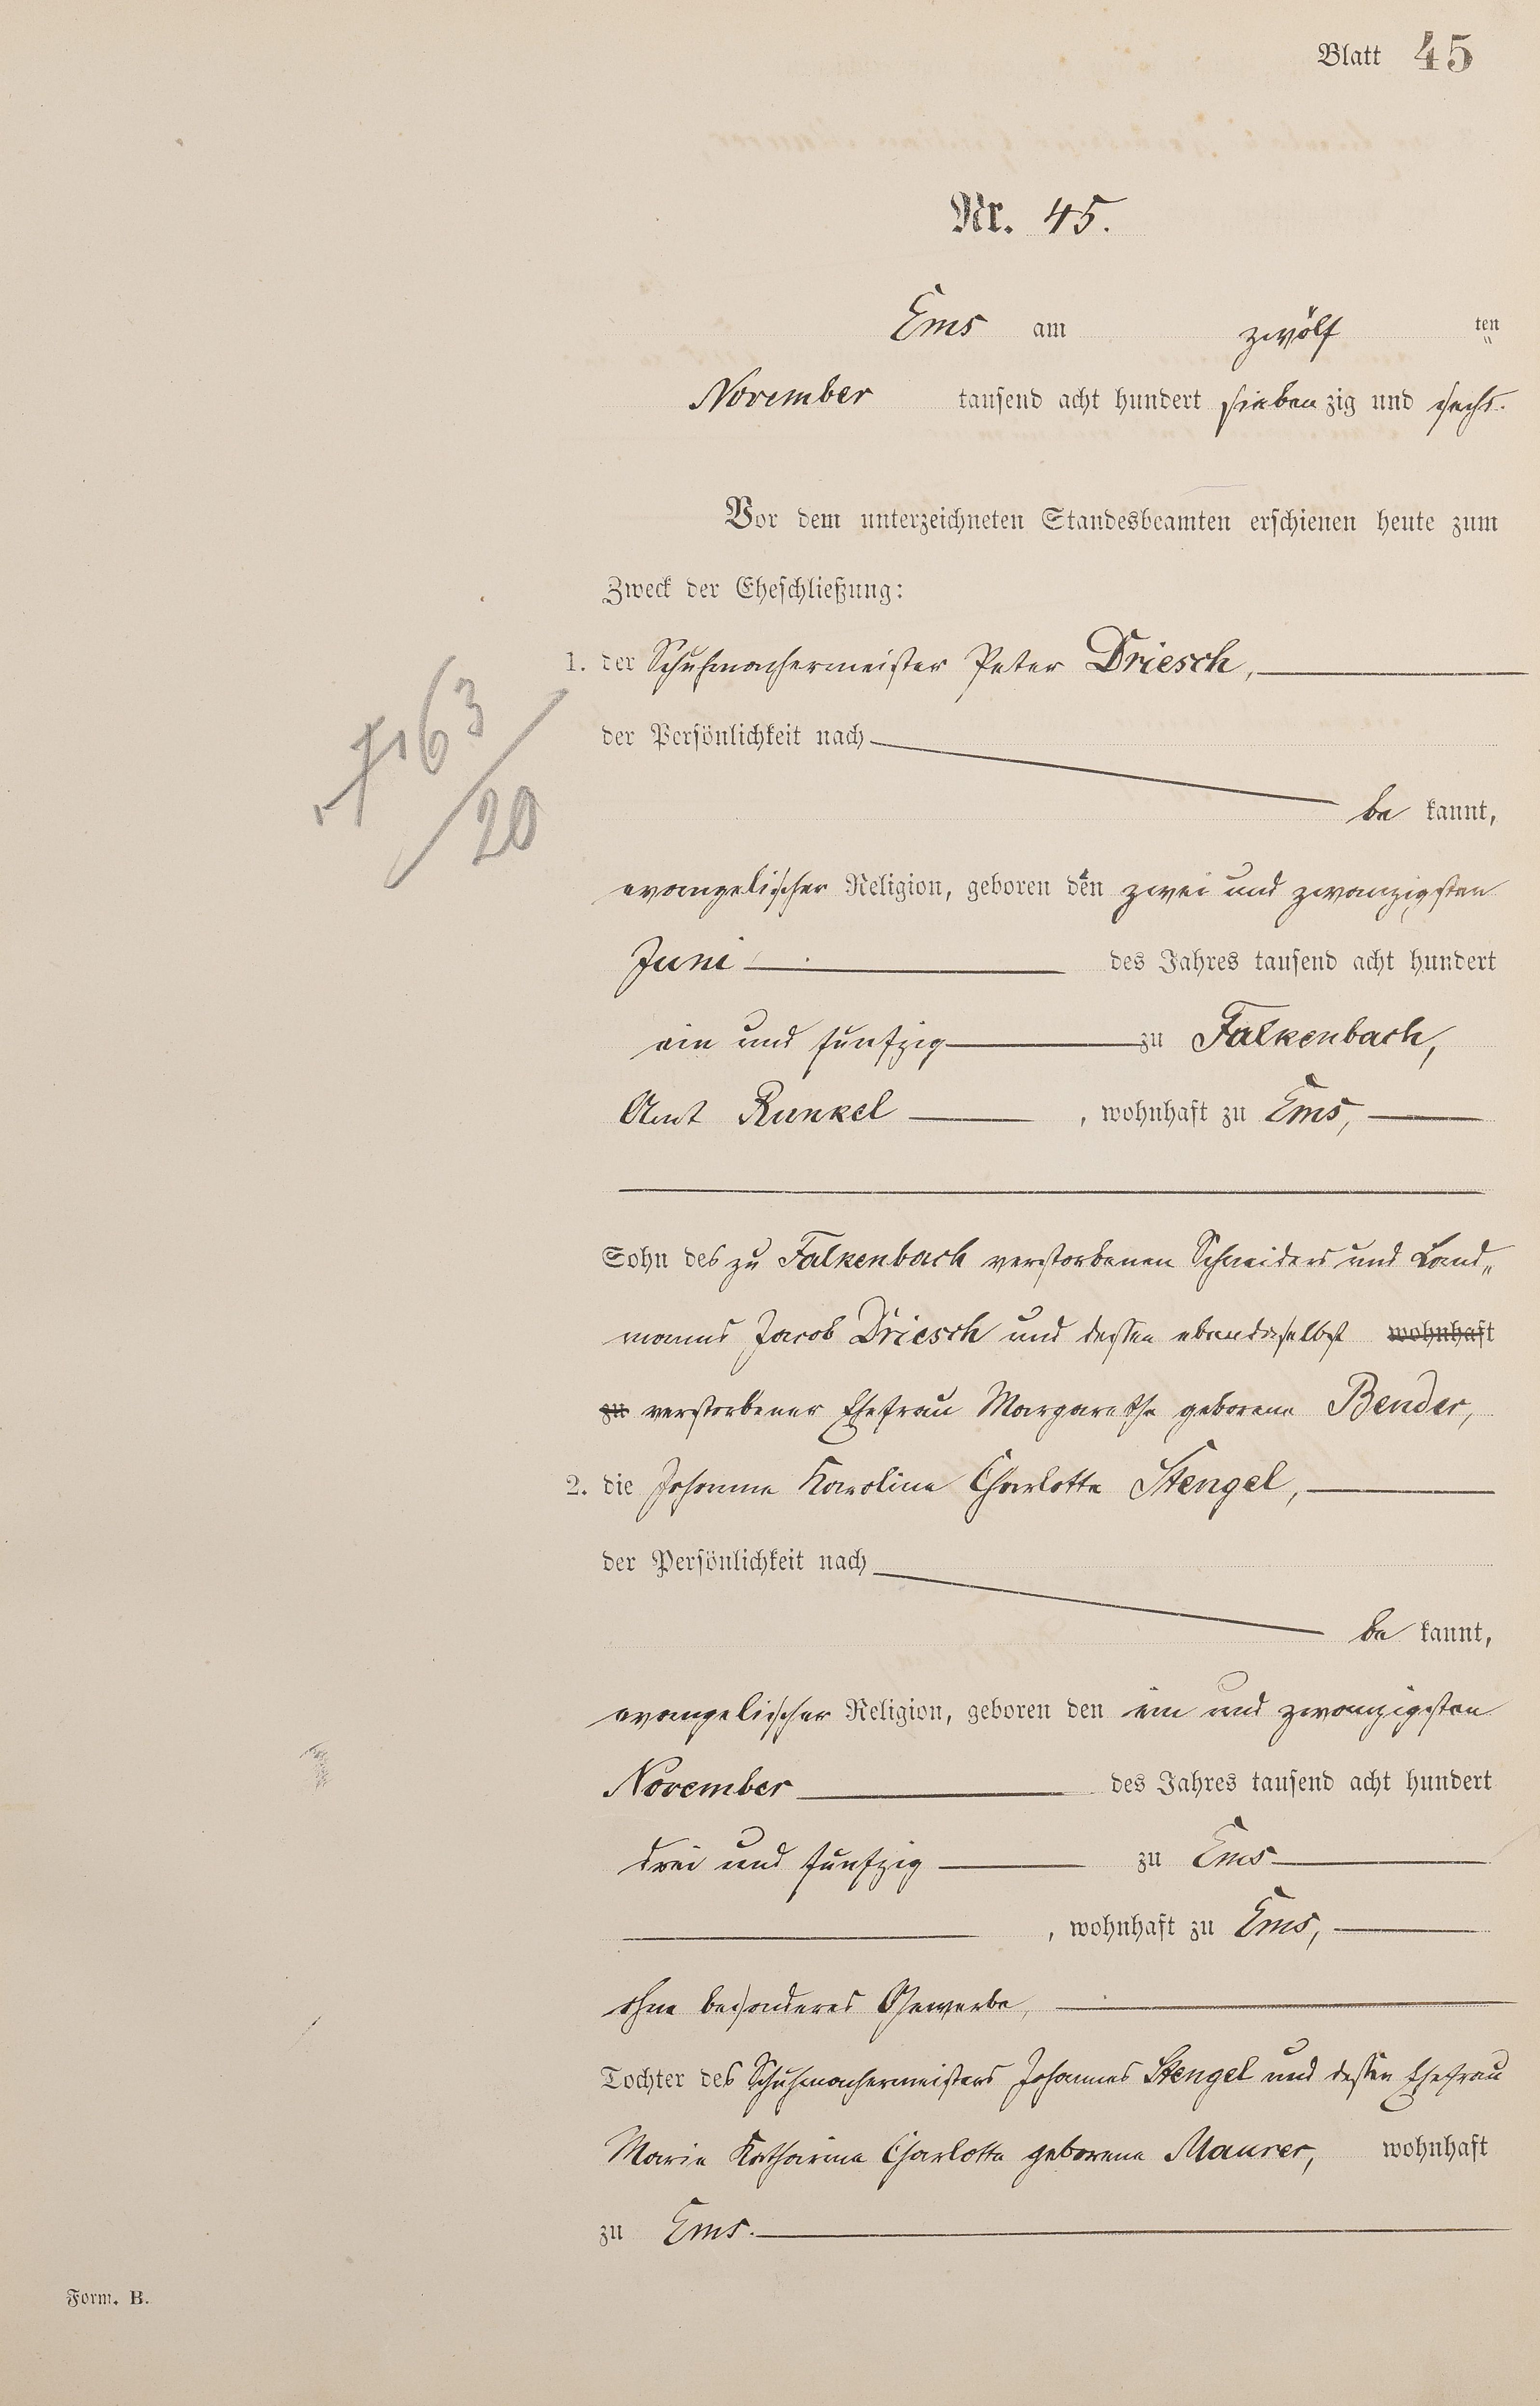 Blatt 45
Nr. 45.
Ems am zwölf ten
November tausend acht hundert siebenzig und sechs.
Vor dem unterzeichneten Standesbeamten erschienen heute zum
Zweck der Eheschließung:
1. der Schuhmachermeister Peter Driesch,
der Persönlichkeit nach
be kannt,
evangelischer Religion, geboren den zwei und zwanzigsten
Juni des Jahres tausend acht hundert
ein und funfzig zu Falkenbach,
Amt Runkel, wohnhaft zu Ems,
Sohn des zu Falkenbach verstorbenen Schneiders und Land„
manns Jacob Driesch und dessen ebendaselbst wohnhaft
zu verstorbener Ehefrau Margarethe geborene Bender,
2. die Johanna Karoline Charlotte Stengel,
der Persönlichkeit nach
be kannt,
evangelischer Religion, geboren den ein und zwanzigsten
November des Jahres tausend acht hundert
drei und funfzig zu Ems
, wohnhaft zu Ems,
ohne besonderes Gewerbe,
Tochter des Schuhmachermeisters Johannes Stengel und dessen Ehefrau
Marie Katharina Charlotte geborene Maurer, wohnhaft
zu Ems.
163/20
Form. B.